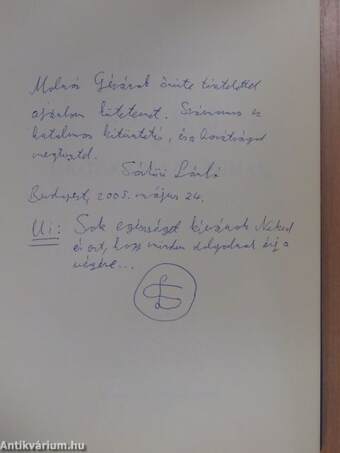 Molnár Gézának őszinte tisztelettel
ajánlom kötetemet. Számomra ez
hatalmas kitüntetés, és a barátságod
megtisztel.
László
Budapest, 2005. május 24.
Ui: Sok egészséget kívánok Neked
és azt, hogy minden dolgodnak érj a
végére...
Antikvárium.hu